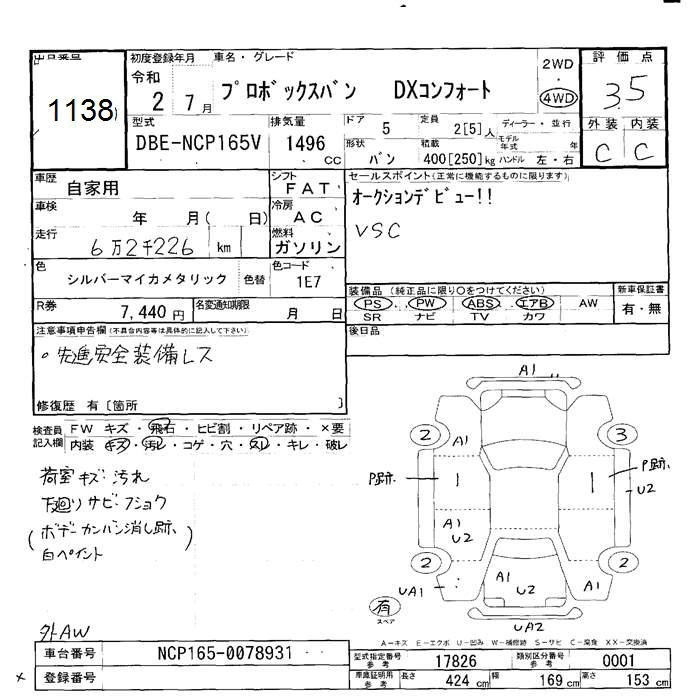 出品番号 1138
初度登録年月 令和 2 7月
車名・グレード プロボックスバン DXコンフォート
2WD ・ 4WD
評価点 3.5
外装 内装
C C
型式 DBE-NCP165V
排気量 1496 CC
ドア 5 定員 2[5]人 ディーラー・並行
形状 バン 積載 400[250]kg モデル年式 年 ハンドル 左・右
車歴 自家用
シフト FAT
セールスポイント(正常に機能するものに限ります)
オークションデビュー!!
VSC
車検 年 月( 日)
冷房 AC
走行 6万2千226 km
燃料 ガソリン
色 シルバーマイカメタリック 色替
色コード 1E7
装備品(純正品に限り○をつけてください) 新車保証書
PS PW ABS エアB AW 有・無
SR ナビ TV カワ
R券 7,440円 名変通知期限 月 日
後日品
注意事項申告欄(不具合内容等は具体的に記入して下さい)
・先進安全装備レス
修復歴 有〔箇所 〕
検査員記入欄 FW キズ・飛石・ヒビ割・リペア跡・×要
内装 キズ・汚レ・コゲ・穴・スレ・キレ・破レ
荷室キズ・汚れ
下廻りサビ・フショク
(ボデーカンバン消し跡、
白ペイント
外AW
A1
2 A1 3
P跡、 | | P跡、
U2
A1
U2
2 2
UA1 A1 U2 A1
有 スペア UA2
A-キズ E-エクボ U-凹み W-補修跡 S-サビ C-腐食 XX-交換済
車台番号 NCP165-0078931
型式指定番号 参考 17826 類別区分番号 参考 0001
× 登録番号
車庫証明用 参考 長さ 424 cm 幅 169 cm 高さ 153 cm